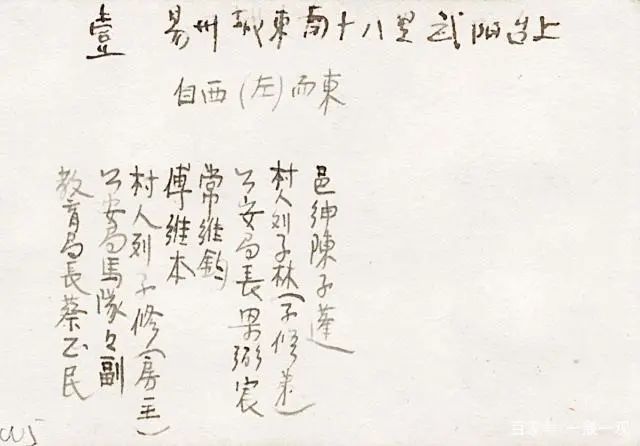 壹　易州城東南十八里武陽台上
自西(左)而東
邑紳陳子蓬
村人刘子林(子修弟)
公安局長梁弼宸
常維鈞
傅維本
村人刘子修(房主)
公安局馬隊々副
教育局長蔡正民
W5
百家号 一般一观